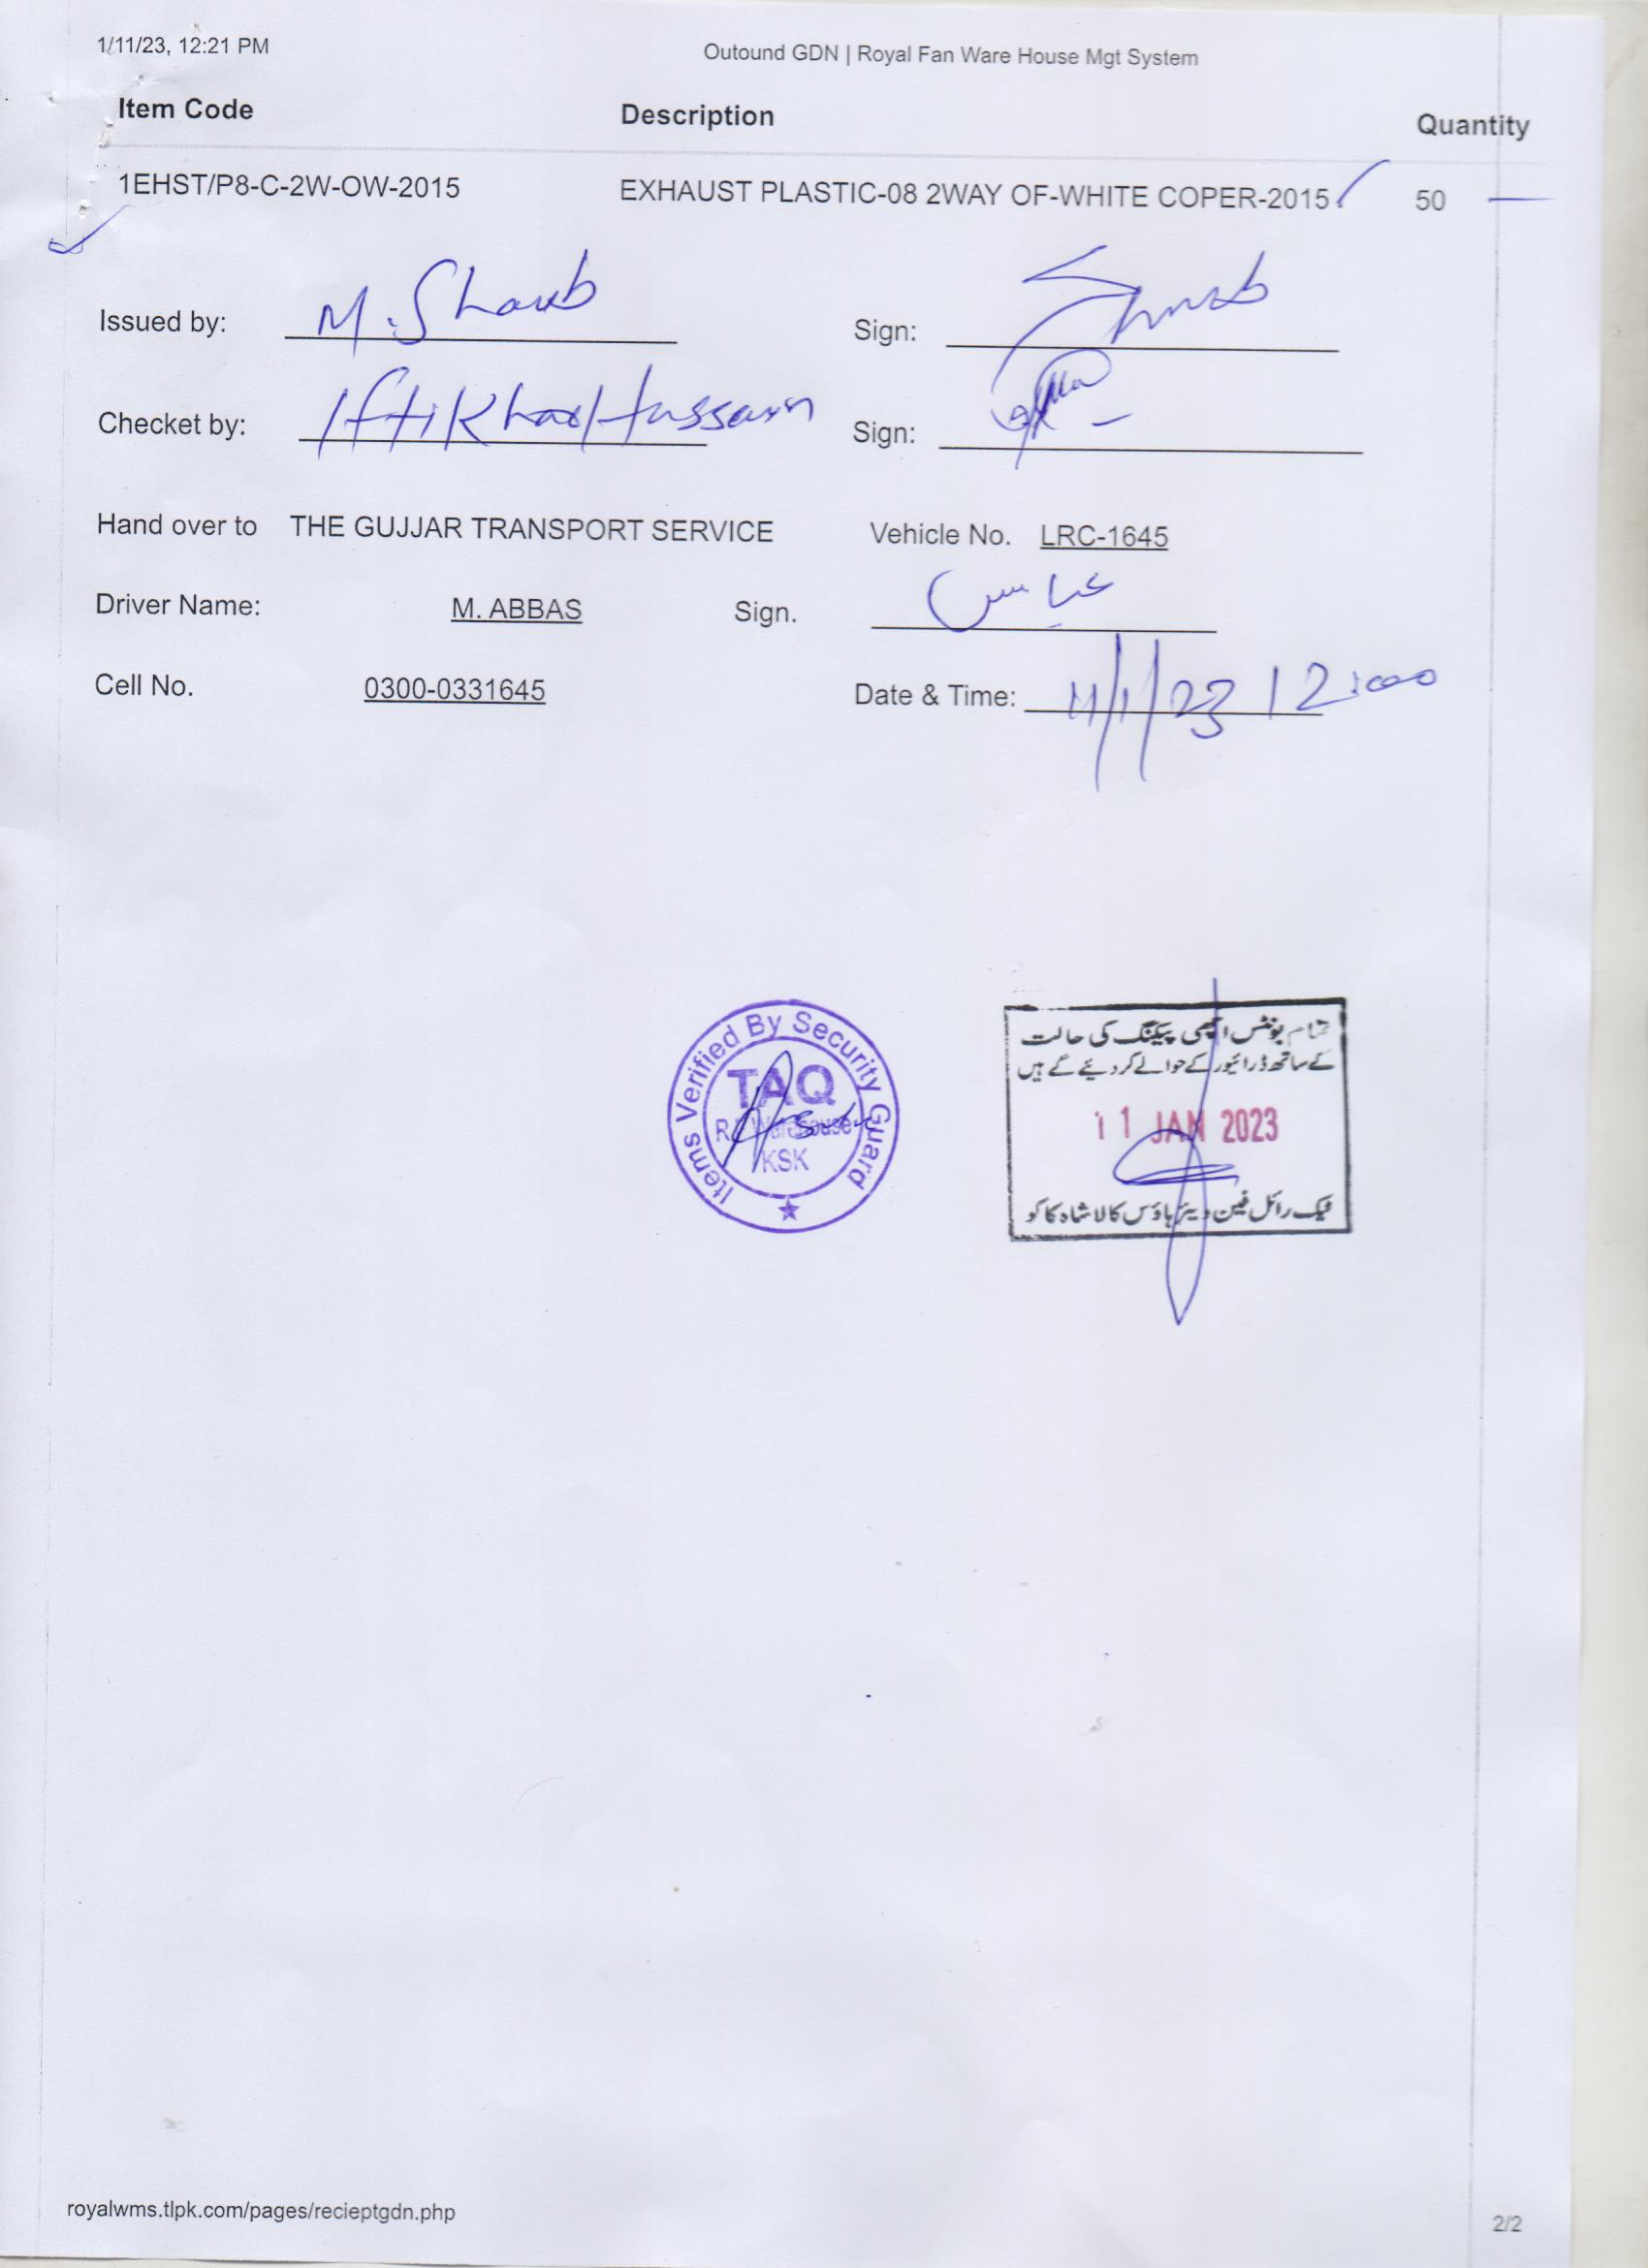 1/11/23, 12:21 PM
Outound GDN | Royal Fan Ware House Mgt System
Item Code Description Quantity
1EHST/P8-C-2W-OW-2015 EXHAUST PLASTIC-08 2WAY OF-WHITE COPER-2015 50
Issued by: M. Shoaib Sign:
Checket by: Iftikhar Hussain Sign:
Hand over to THE GUJJAR TRANSPORT SERVICE Vehicle No. LRC-1645
Driver Name: M. ABBAS Sign. عباس
Cell No. 0300-0331645 Date & Time: 11/1/23 12:00
Items Verified By Security Guard
TAQ
Warehouse
KSK
تمام یونٹس اچھی پیکنگ کی حالت
کے ساتھ ڈرائیور کے حوالے کر دیئے گے ہیں
11 JAN 2023
ٹیک رائل فین ویئر ہاؤس کالا شاہ کاکو
royalwms.tlpk.com/pages/recieptgdn.php
2/2